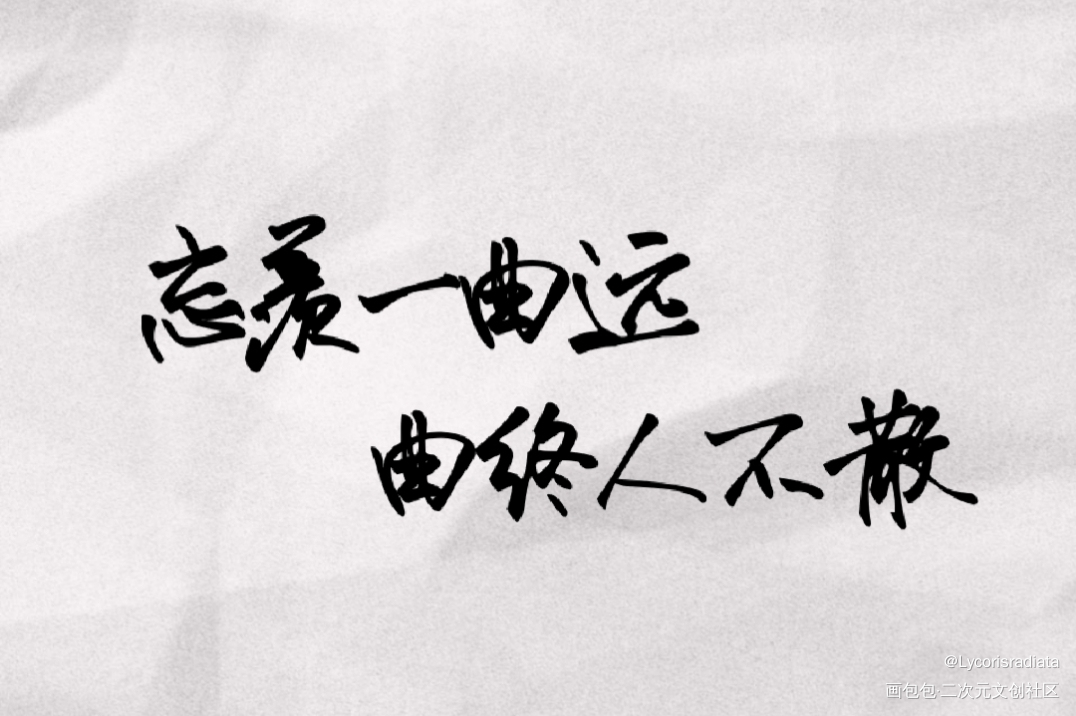 忘羡一曲远
曲终人不散
@Lycorisradiata
画包包·二次元文创社区